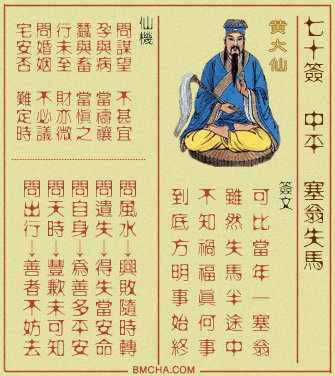 七十簽 中平 塞翁失馬
黃大仙
簽文
可比當年一塞翁
雖然失馬半途中
不知禍福真何事
到底方明事始終
仙機
問謀望 不甚宜
孕與病 當禱禳
蠶與畜 當慎之
行未至 財亦微
問婚姻 不必議
宅安否 難定時
問風水→興敗隨時轉
問遺失→得失當安命
問自身→為善多平安
問天時→豐歉未可知
問出行→善者不妨去
BMCHA.COM